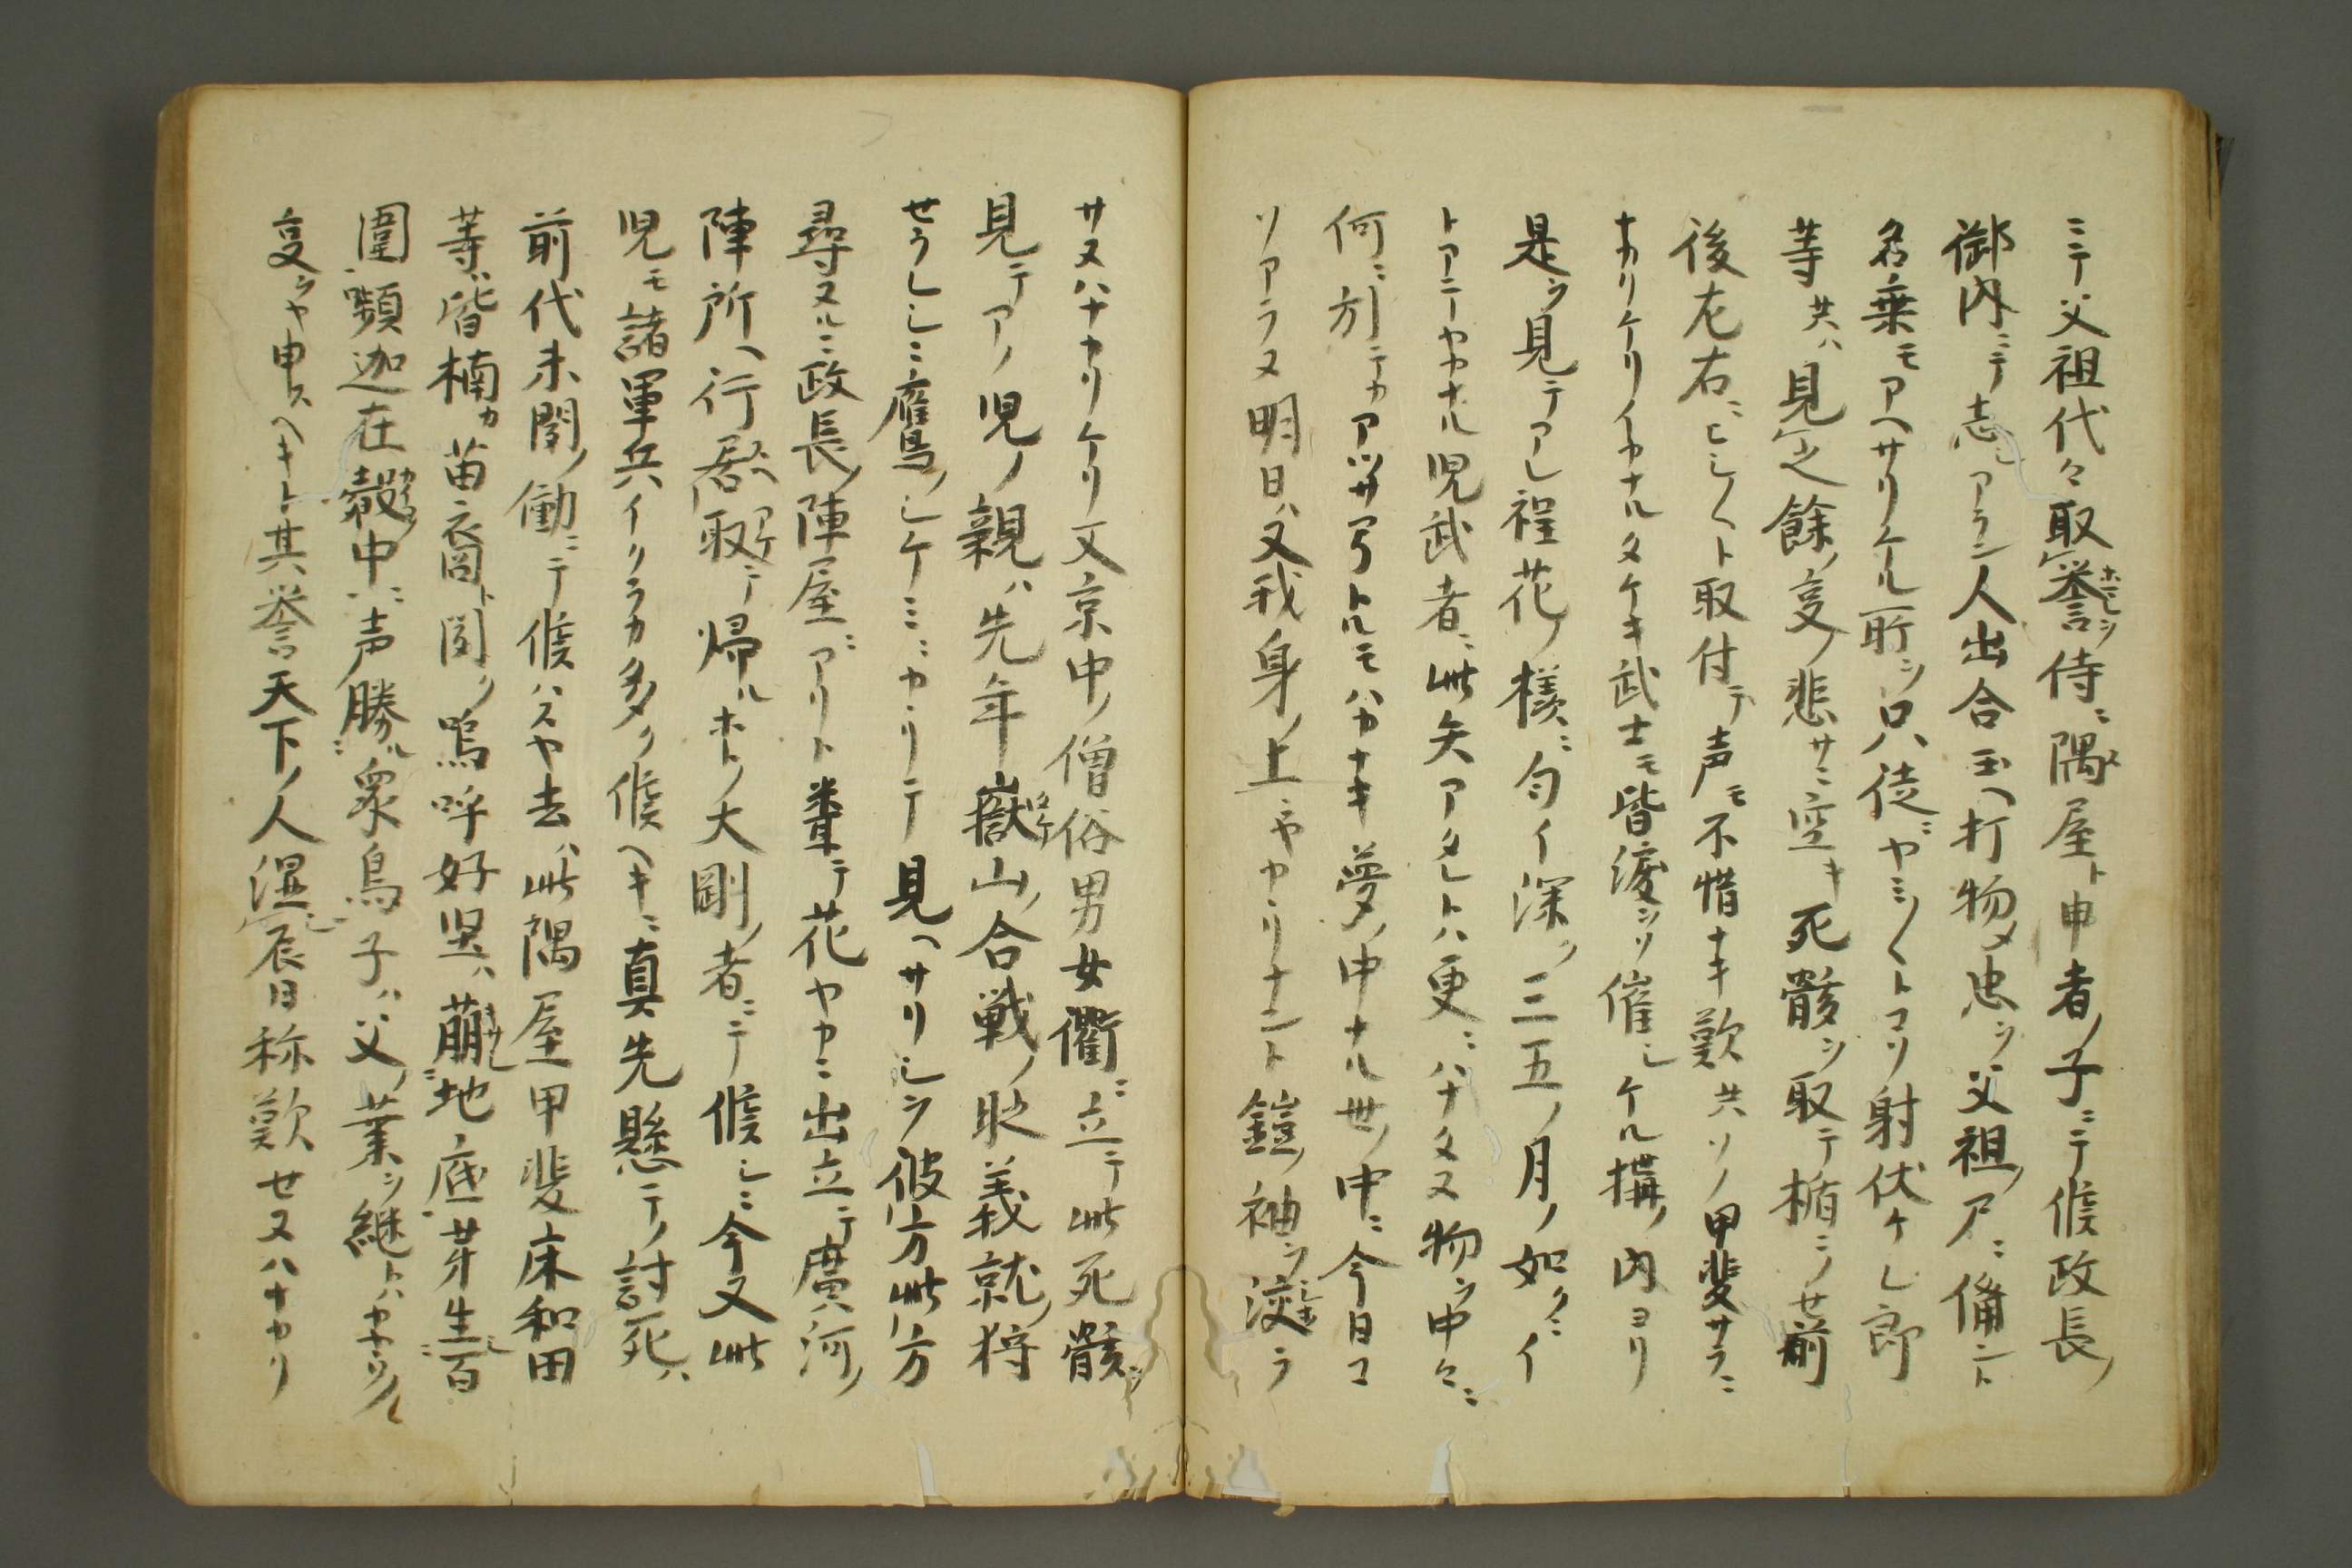 ニテ父祖代々取誉ヲ侍ニ隅屋ト申者ノ子ニテ候政長ノ
御内ニテ志アラン人出合玉ヘ打物メ忠ヲ父祖ノアニ備ント
名乗モアヘサリケル所ヲ只徒ニヤミ〳〵トコソ射伏ケレ郎
等共ハ見之餘ノ夏ノ悲サニ空キ死骸ヲ取テ楯ニノせ前
後左右ニヒシ〳〵ト取付テ声モ不惜ナキ歎共ソノ甲斐サラニ
ナカリケリイカナルタケキ武士モ皆涙ヲソ催シケル構ノ内ヨリ
是ヲ見テアレ程花ノ様ニ匂イ深ク三五ノ月ノ如クニイ
トアテヤカナル児武者ニ此矢アタレトハ更ニハナタヌ物ヲ中々ニ
何ニ引テカアツサ弓トルモハカナキ夢ノ中ナル世ノ中ニ今日コ
ソアラヌ明日ハ又我身ノ上ニヤカヽリナント鎧ノ袖ヲ湿ラ
サヌハナカリケリ又京中ノ僧俗男女衢ニ立テ此死骸ヲ
見テアノ児ノ親ハ先年嶽山ノ合戦ノ時義就ノ狩
せラレシニ鷹ノシケミニカヽリテ見ヘサリシヲ彼方此方
尋ヌルニ政長ノ陣屋ニアリト聞テ花ヤカニ出立テ廣河ノ
陣所ヘ行居取テ帰ルホトノ大剛ノ者ニテ候シニ今又此
児モ諸軍兵イクラカ多ク候ヘキニ真先懸テノ討死ハ
前代未聞ノ働ニテ候ハスヤ去ハ此隅屋甲斐床和田
等ハ皆楠カ苗裔ト聞ク嗚呼好堅ハ萠地底芽生百
圍頻迦在𪅏中声勝衆鳥子ハ父ノ業ヲ継トハカヽルヲ
夏ヲヤ申スヘキト其誉天下ノ人湿衣日称歎せヌハナカリ